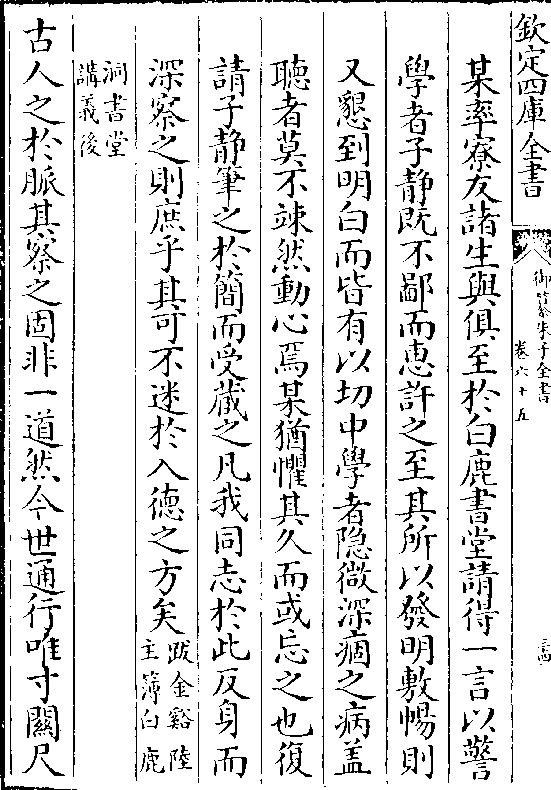 欽定四庫全書
御纂朱子全書
卷六十五
三四
某率寮友諸生與俱至於白鹿書堂請得一言以警
學者子静既不鄙而惠許之至其所以發明敷暢則
又懇到明白而皆有以切中學者隠微深痼之病盖
聽者莫不竦然動心焉某猶懼其久而或忘之也復
請子静筆之於簡而受蔵之凡我同志於此反身而
深察之則庶乎其可不迷於入徳之方矣跋金谿陸主簿白鹿
洞書堂講義後
古人之於脈其察之固非一道然今世通行唯寸關尺